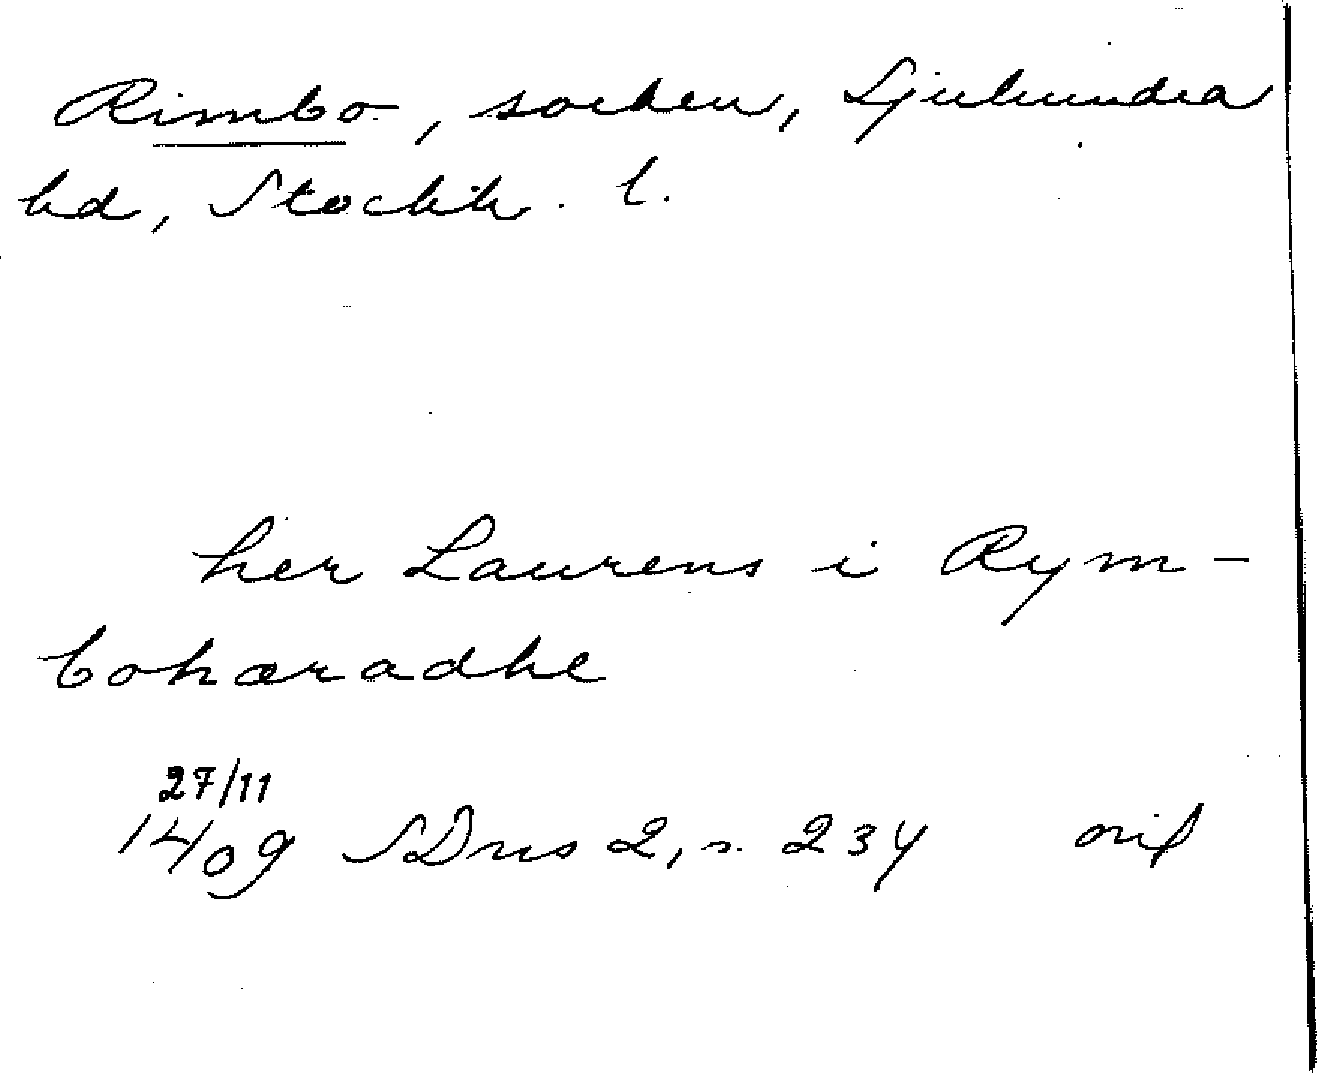 Rimbo, socken, Sjuhundra
hd, Stockh. l.
her Laurens i Rym-
bohæradhe
27/11
1409 SDns 2, s. 234 orig